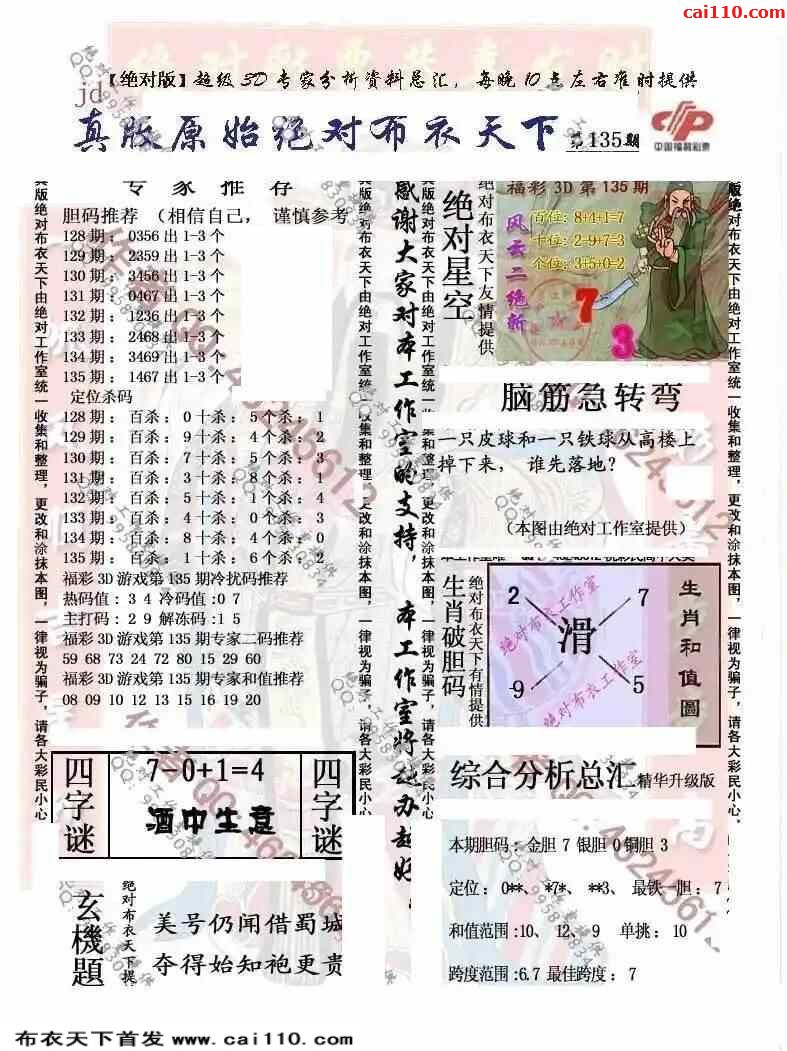 cai110.com
【绝对版】超级3D专家分析资料总汇，每晚10点左右准时提供
jd
真版原始绝对布衣天下
第135期
中国福利彩票
专家推荐
胆码推荐 （相信自己， 谨慎参考
128期：0356出1-3个
129期：2359出1-3个
130期：3456出1-3个
131期：0467出1-3个
132期：1236出1-3个
133期：2468出1-3个
134期：3469出1-3个
135期：1467出1-3个
定位杀码
128期：百杀：0十杀：5个杀：1
129期：百杀：9十杀：4个杀：2
130期：百杀：7十杀：5个杀：3
131期：百杀：3十杀：8个杀：1
132期：百杀：5十杀：1个杀：4
133期：百杀：4十杀：0个杀：3
134期：百杀：8十杀：4个杀：0
135期：百杀：1十杀：6个杀：2
福彩3D游戏第135期冷扰码推荐
热码值：3 4 冷码值:0 7
主打码：2 9 解冻码:1 5
福彩3D游戏第135期专家二码推荐
59 68 73 24 72 80 15 29 60
福彩3D游戏第135期专家和值推荐
08 09 10 12 13 15 16 19 20
版绝对布衣天下由绝对工作室统一收集和整理，更改和涂抹本图，一律视为骗子，请各大彩民小心
感谢大家对本工作室的支持，本工作室将越办越好
绝对星空
绝对布衣天下友情提供
福彩3D第135期
风云二绝斩
百位：8+4+1=7
十位：2-9+7=3
个位：3+5+0=2
7
3
脑筋急转弯
一只皮球和一只铁球从高楼上
掉下来， 谁先落地？
（本图由绝对工作室提供）
生肖破胆码
绝对布衣天下有情提供
2
7
滑
9
5
绝对布衣工作室
绝对布衣工作室
生肖和值圖
四字谜
7-0+1=4
酒中生意
四字谜
玄機題
绝对布衣天下提
美号仍闻借蜀城
夺得始知袍更贵
综合分析总汇 精华升级版
本期胆码：金胆 7 银胆 0 铜胆 3
定位：0**、 *7*、 **3、 最铁一胆：7
和值范围:10、 12、 9 单挑：10
跨度范围:6.7 最佳跨度：7
布衣天下首发 www.cai110.com